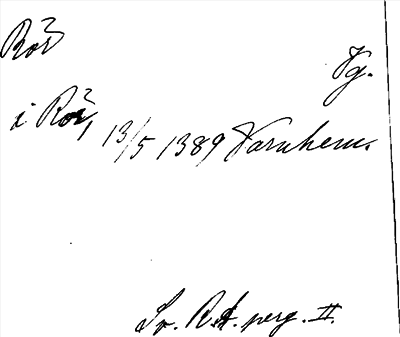 Roz
Vg.
i Roz, 13/5 1389 Varnhem.
Sv. R.A. perg. II.